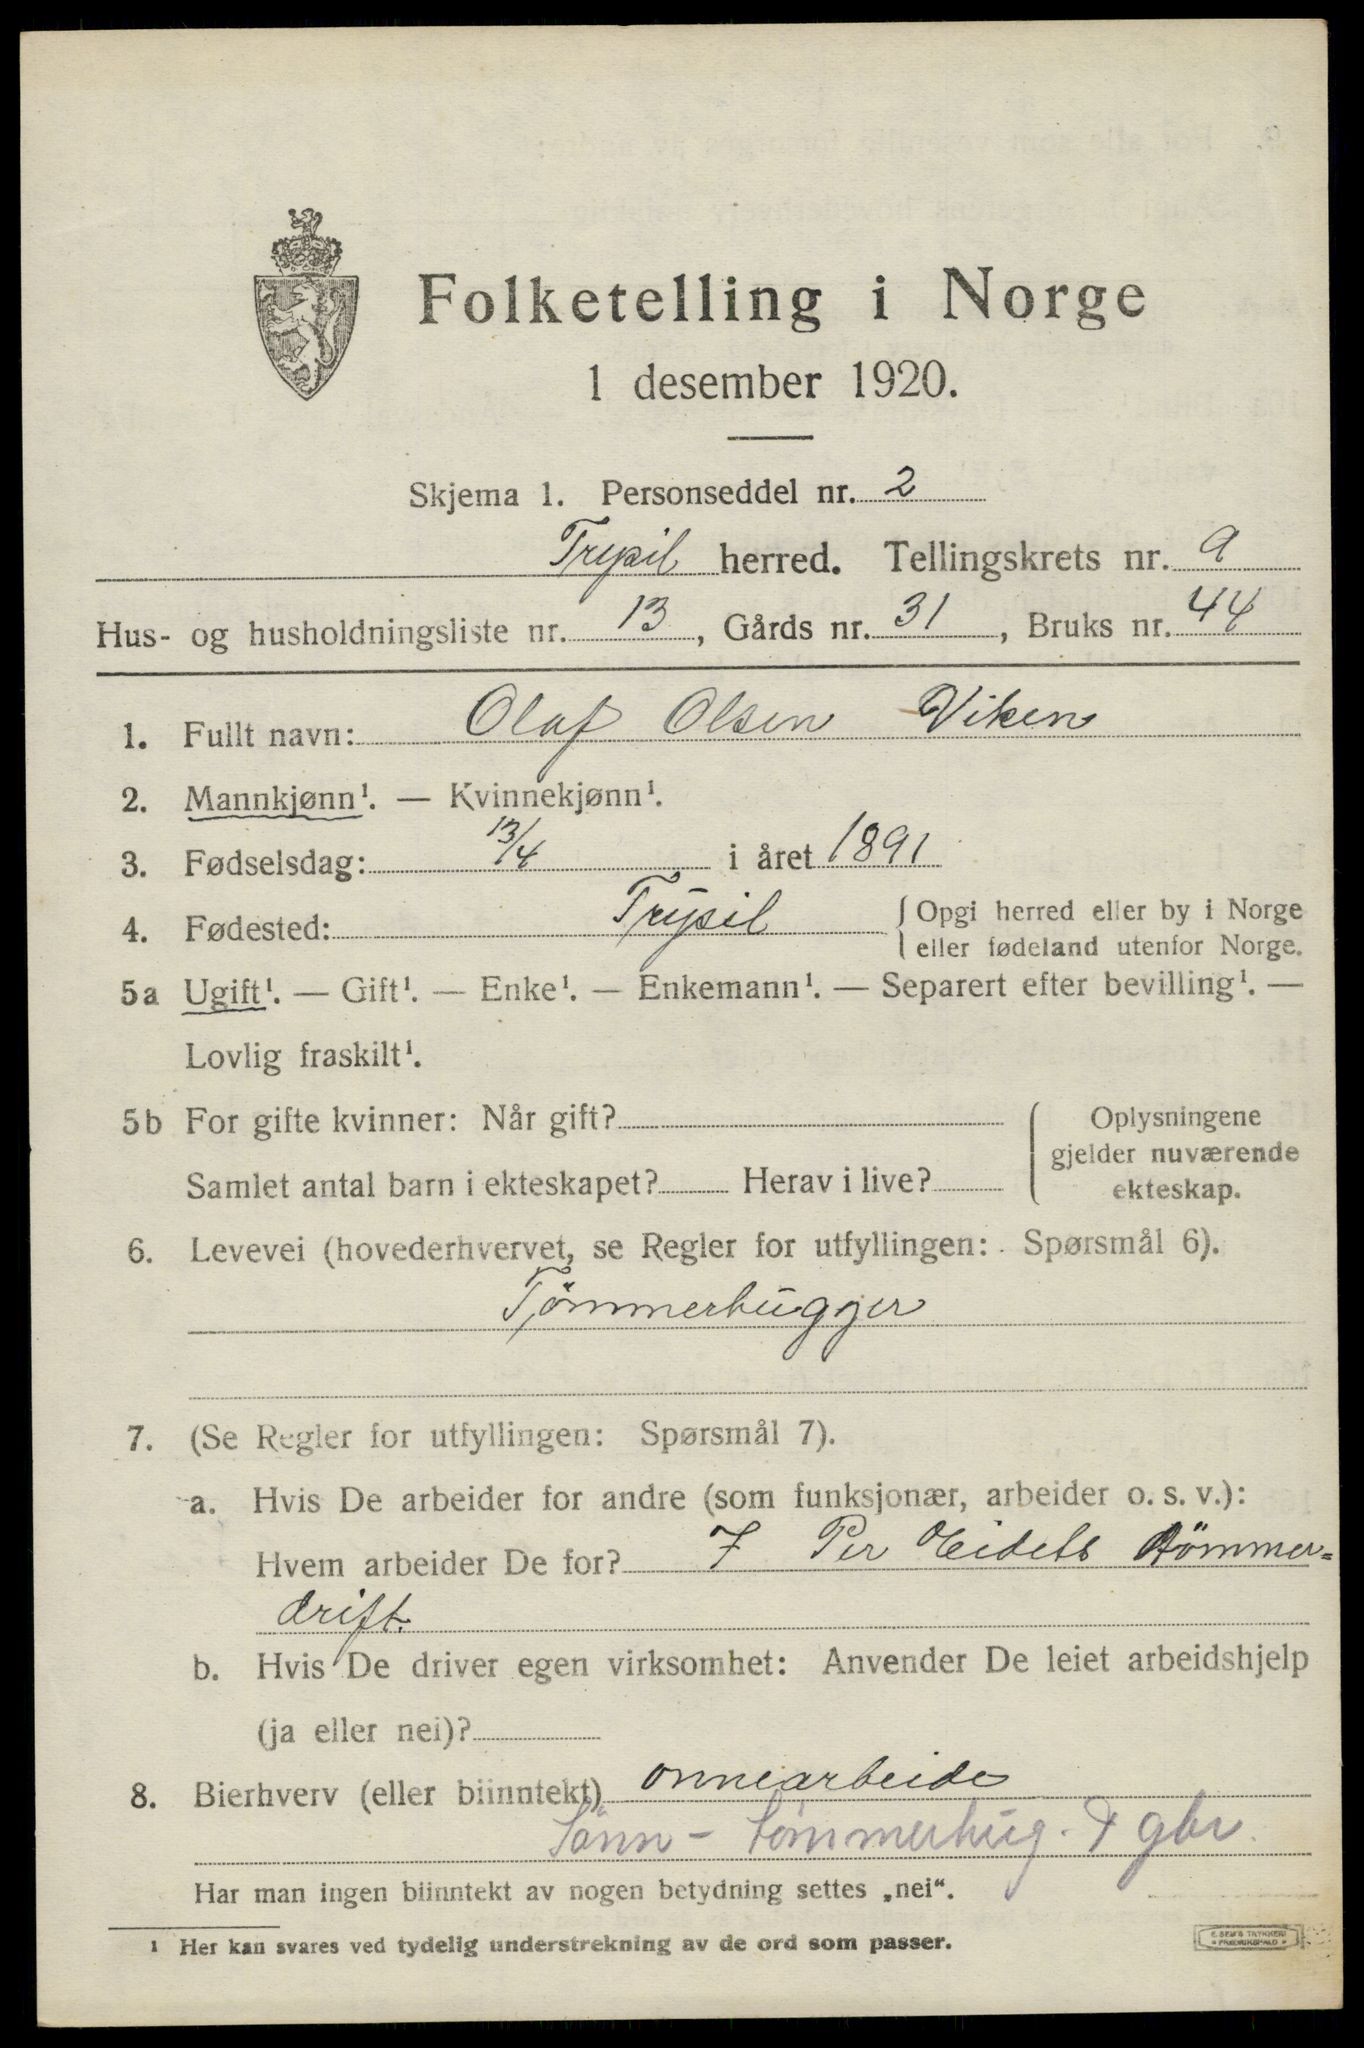 Folketelling i Norge
1 desember 1920.
Skjema 1. Personseddel nr. 2
Trysil herred. Tellingskrets nr. 9
Hus- og husholdningsliste nr. 13, Gårds nr. 31, Bruks nr. 44
1. Fullt navn: Olaf Olsen Viken
2. Mannkjønn¹. — Kvinnekjønn¹.
3. Fødselsdag: 13/4 i året 1891
4. Fødested: Trysil { Opgi herred eller by i Norge
eller fødeland utenfor Norge.
5a Ugift¹. — Gift¹. — Enke¹. — Enkemann¹. — Separert efter bevilling¹. —
Lovlig fraskilt¹.
5b For gifte kvinner: Når gift?
Samlet antal barn i ekteskapet? Herav i live?
Oplysningene
gjelder nuværende
ekteskap.
6. Levevei (hovederhvervet, se Regler for utfyllingen: Spørsmål 6).
Tjömmerhugger
7. (Se Regler for utfyllingen: Spørsmål 7).
a. Hvis De arbeider for andre (som funksjonær, arbeider o. s. v.):
Hvem arbeider De for? I Per Eidets tömmer=
drift.
b. Hvis De driver egen virksomhet: Anvender De leiet arbeidshjelp
(ja eller nei)?
8. Bierhverv (eller biinntekt) onnearbeide
Sönn - tömmerhug. & gbr.
Har man ingen biinntekt av nogen betydning settes „nei“.
¹ Her kan svares ved tydelig understrekning av de ord som passer.
E. SEM'S TRYKKERI
FREDRIKSHALD